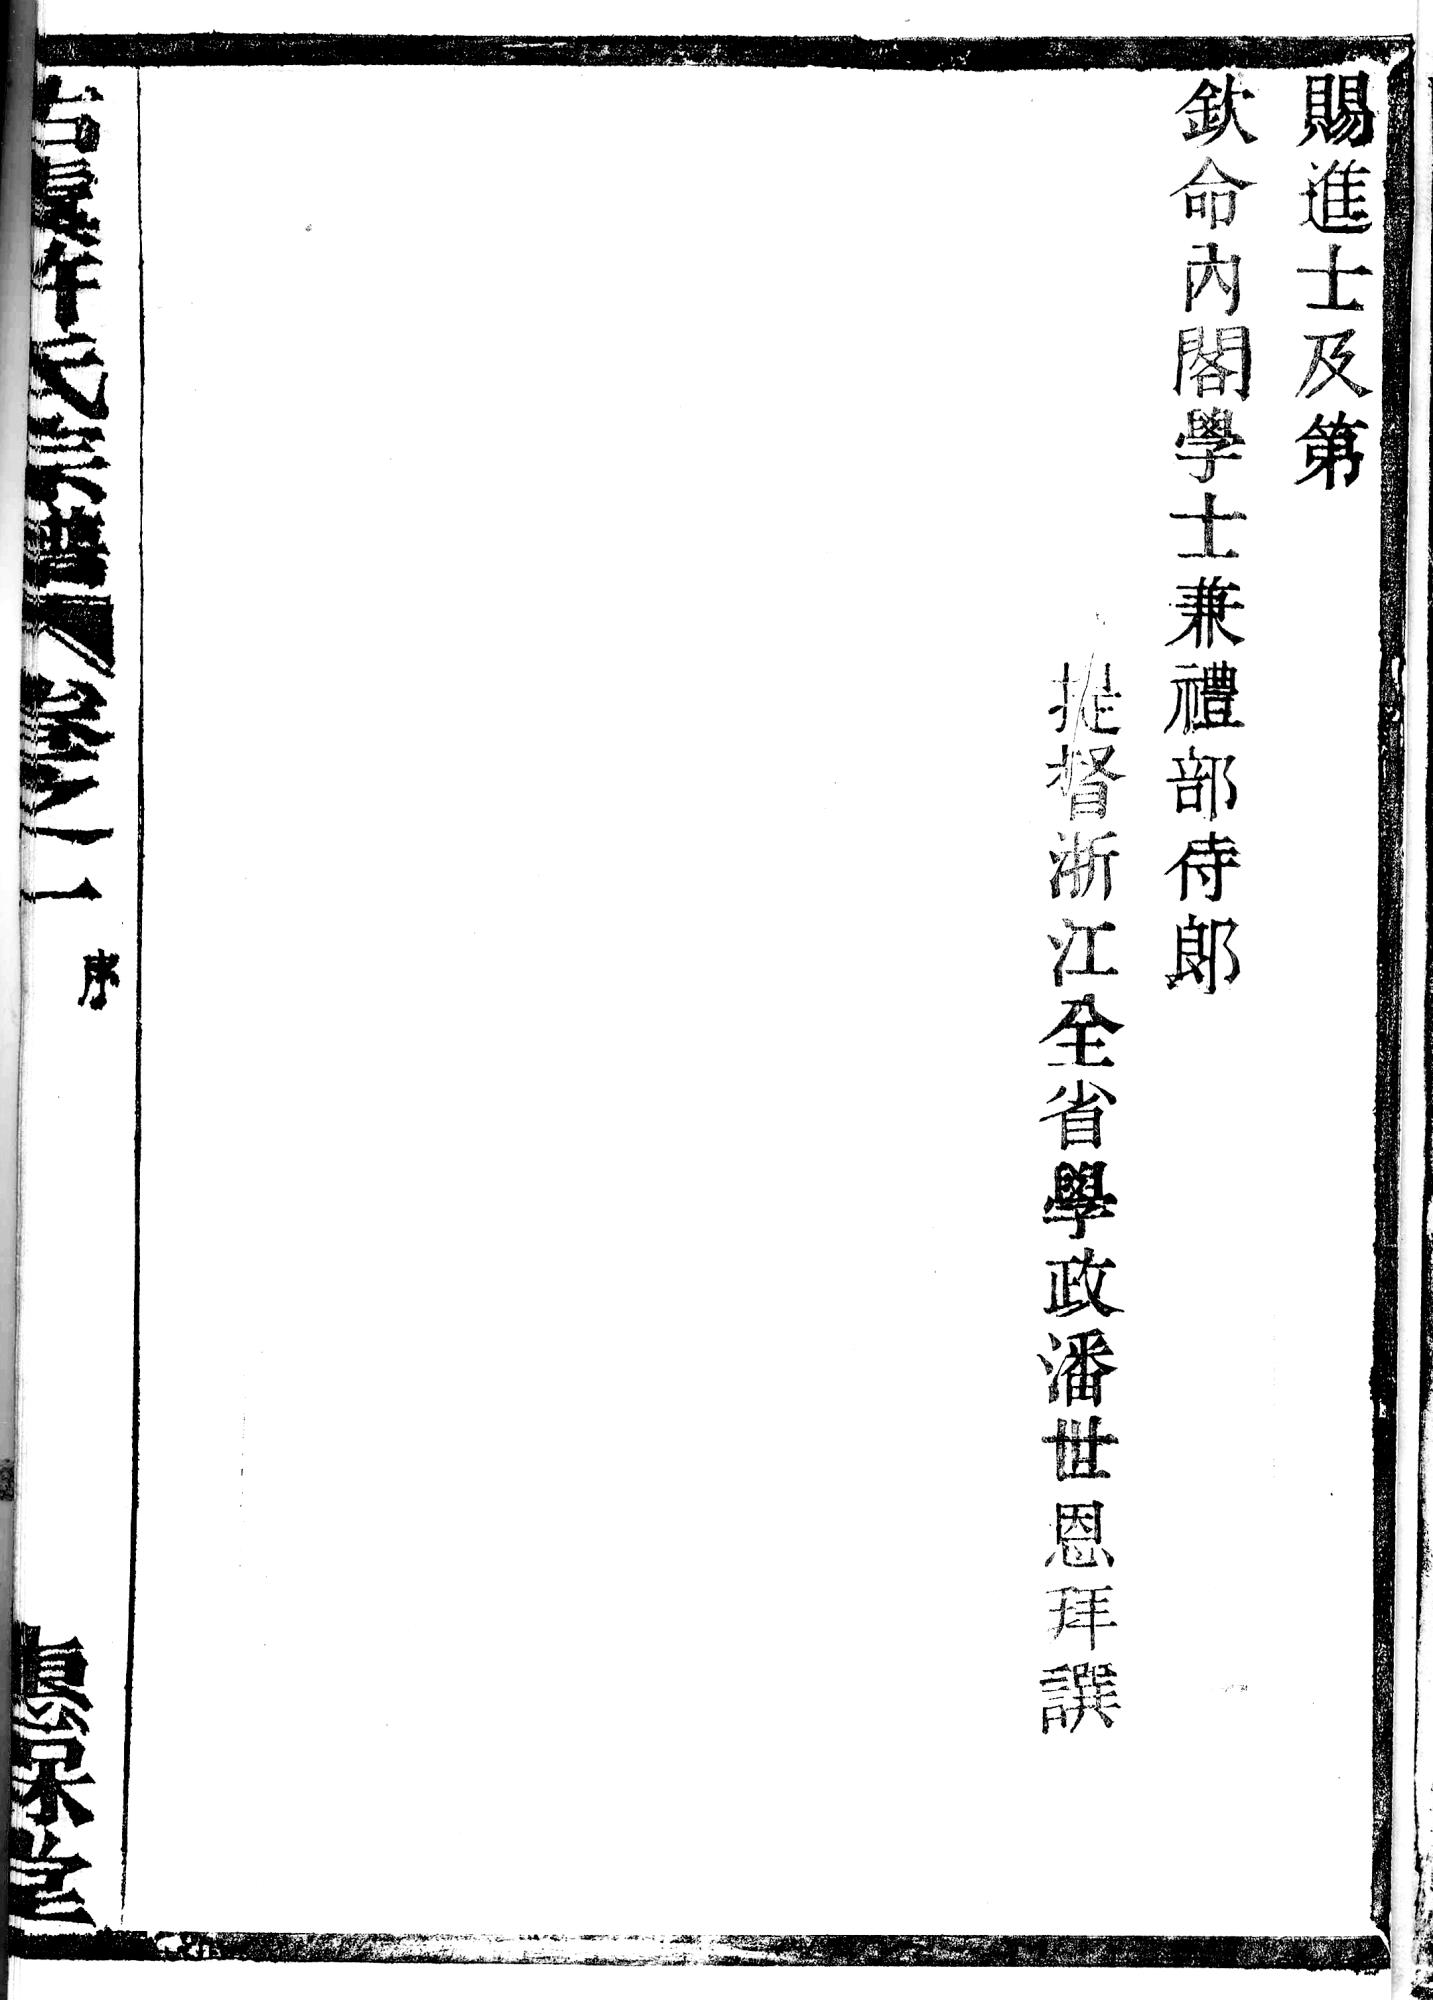 賜進士及第
欽命內閣學士兼禮部侍郎
提督浙江全省學政潘世恩拜譔
古虞許氏宗譜 卷之一
序
堂